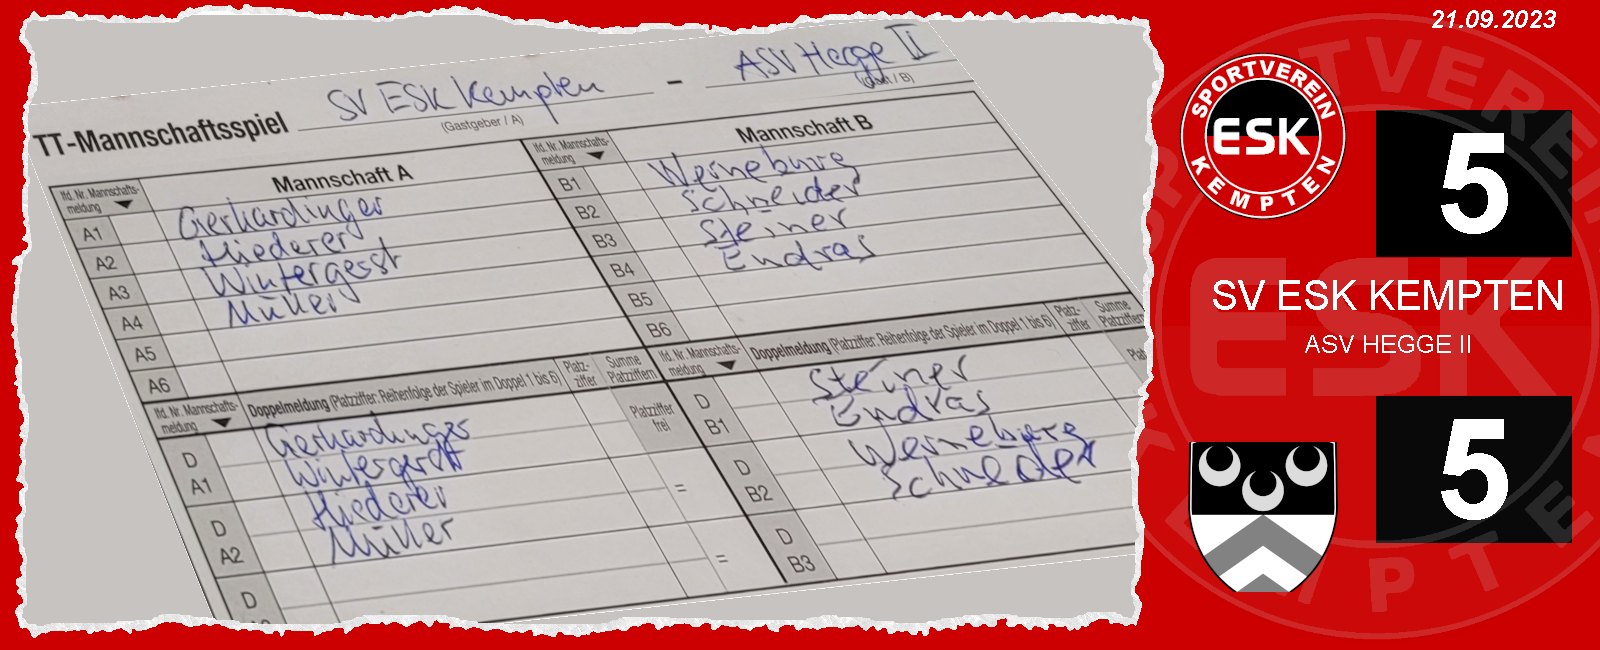 21.09.2023
SV ESK Kempten - ASV Hegge II
TT-Mannschaftsspiel
(Gastgeber / A)
(Gast / B)
lfd. Nr. Mannschafts-
meldung
Mannschaft A
A1 Gerhardinger
A2 Hiederer
A3 Wintergerst
A4 Müller
A5
A6
lfd. Nr. Mannschafts-
meldung
Mannschaft B
B1 Werneburg
B2 Schneider
B3 Steiner
B4 Endras
B5
B6
lfd. Nr. Mannschafts-
meldung
Doppelmeldung (Platzziffer: Reihenfolge der Spieler im Doppel 1 bis 6)
Platz-
ziffer
Summe
Platzziffern
D
A1
Gerhardinger
Wintergerst
Platzziffer
frei
D
A2
Hiederer
Müller
=
D
=
lfd. Nr. Mannschafts-
meldung
Doppelmeldung (Platzziffer: Reihenfolge der Spieler im Doppel 1 bis 6)
Platz-
ziffer
Summe
Platzziffern
D
B1
Steiner
Endras
D
B2
Werneburg
Schneider
D
B3
SPORTVEREIN
ESK
KEMPTEN
5
SV ESK KEMPTEN
ASV HEGGE II
5